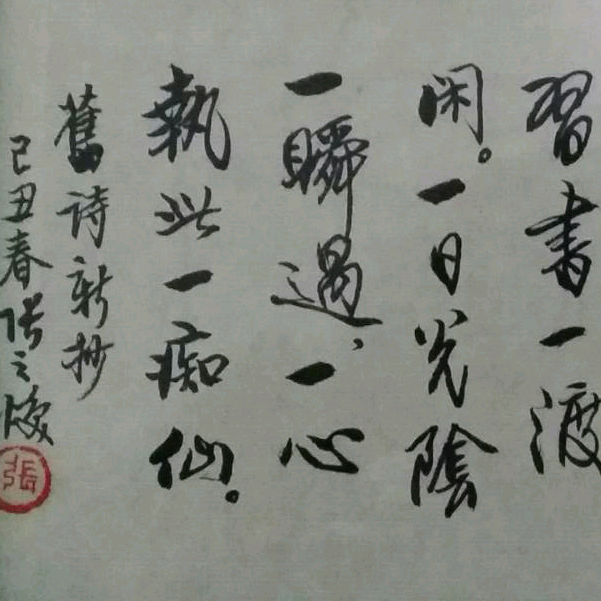 習書一渡
閑。一日光陰
一瞬遇,一心
執此一痴仙。
舊詩新抄
己丑春張之
張